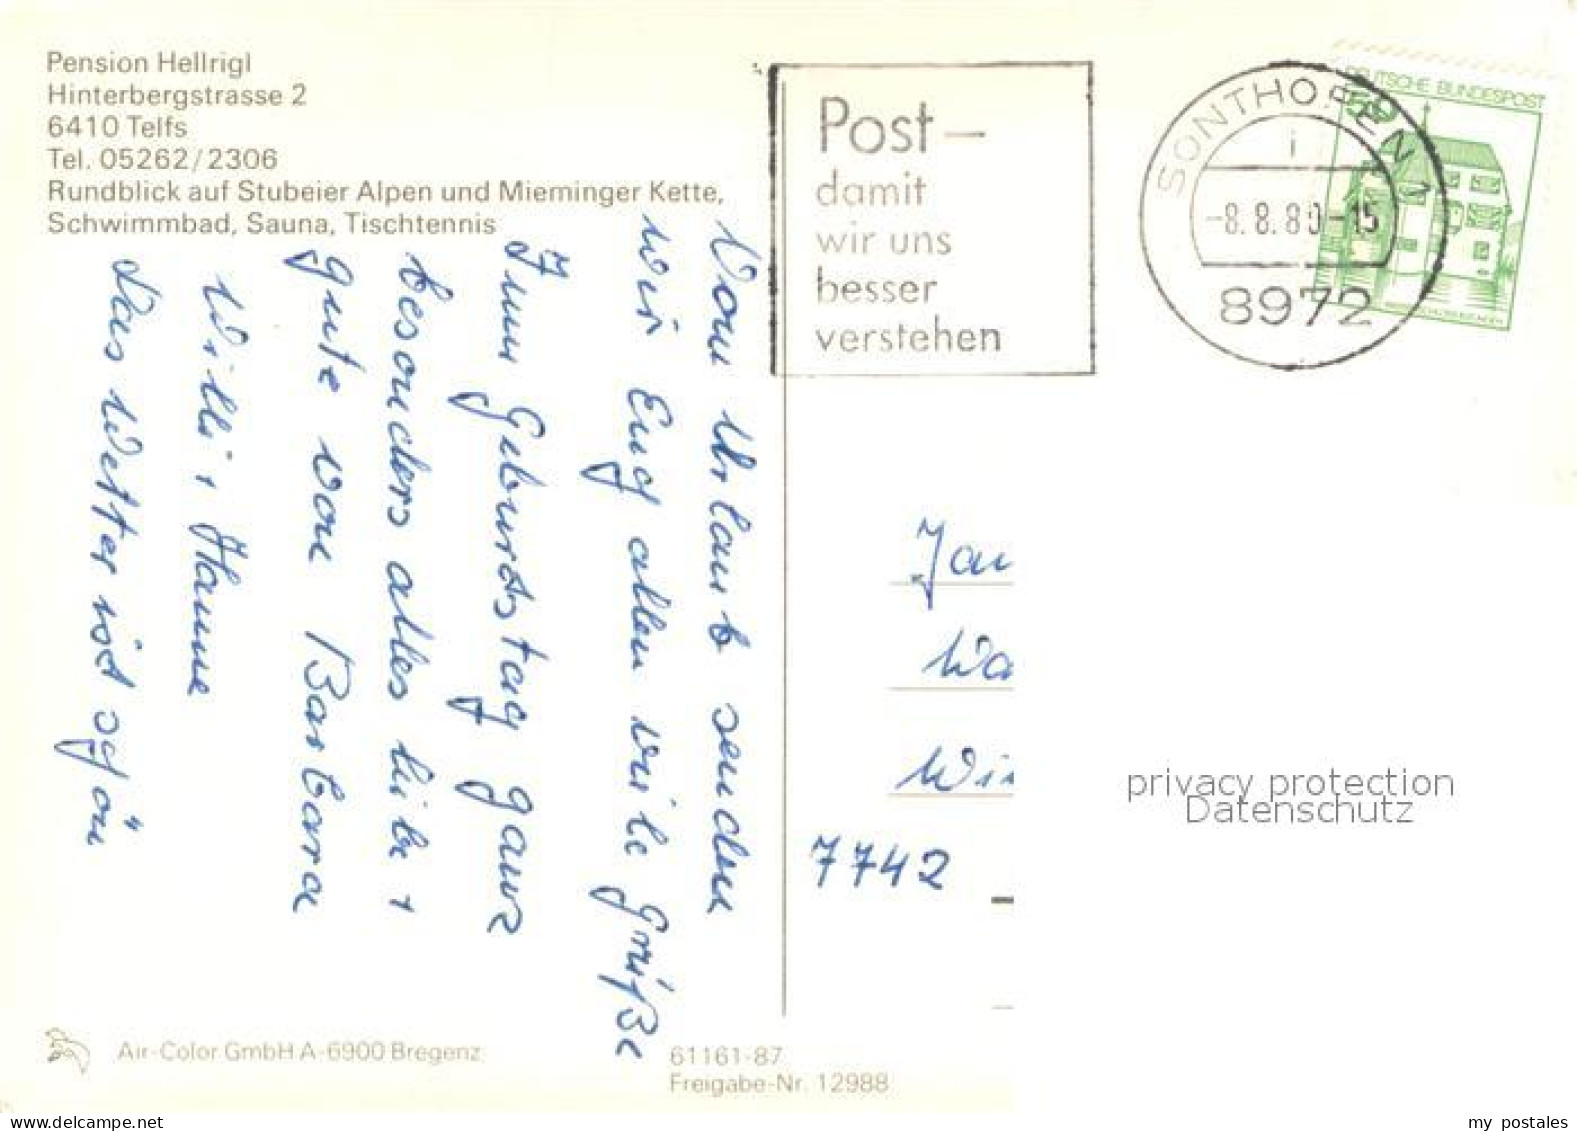 Pension Hellrigl
Hinterbergstrasse 2
6410 Telfs
Tel. 05262/2306
Rundblick auf Stubeier Alpen und Mieminger Kette,
Schwimmbad, Sauna, Tischtennis
Vom Urlaub senden
wir Euch allen viele Grüße
Zum Geburtstag ganz
besonders alles liebe +
gute von Barbara
Willi + Hanne
Das Wetter ist schön
Post –
damit
wir uns
besser
verstehen
SONTHOFEN 1
i
-8.8.80-15
8972
DEUTSCHE BUNDESPOST
50
7742
privacy protection
Datenschutz
Air-Color GmbH A-6900 Bregenz
61161-87
Freigabe-Nr. 12988
www.delcampe.net
my postales